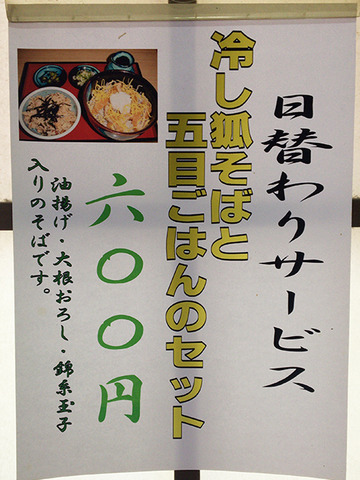 日替わりサービス
冷し狐そばと
五目ごはんのセット
六〇〇円
油揚げ・大根おろし・錦糸玉子
入りのそばです。